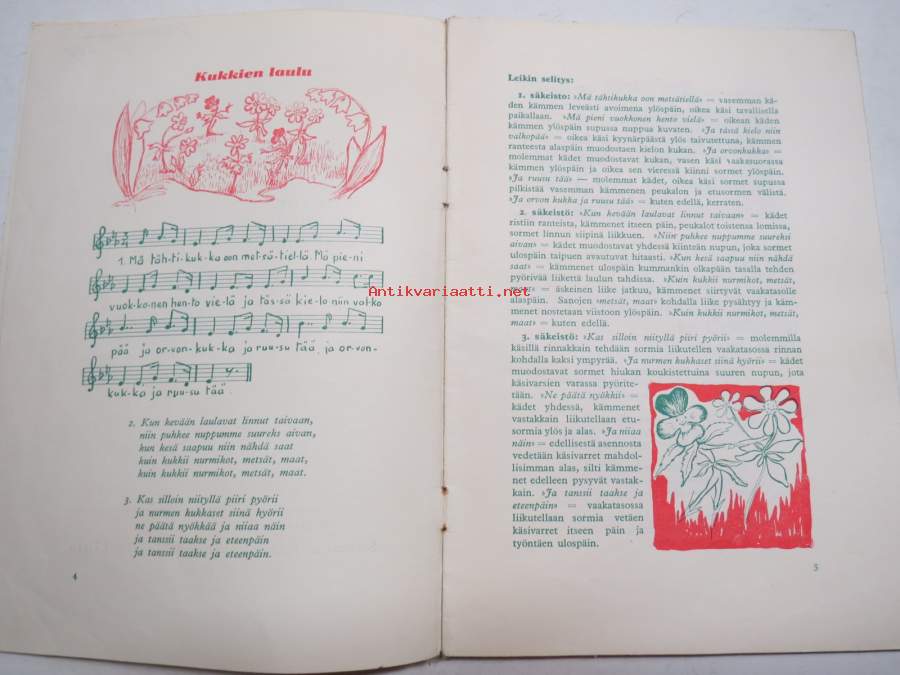 Kukkien laulu
1. Mä täh-ti-kuk-ka oon met-sä-tiel-lä Mä pie-ni
vuok-ko-nen hen-to vie-lä ja täs-sä kie-lo niin val-ko
Antikvariaatti.net
pää ja or-von-kuk-ka ja ruu-su tää ja or-von-
kuk-ka ja ruu-su tää
2. Kun kevään laulavat linnut taivaan,
niin puhkee nuppumme suureks aivan,
kun kesä saapuu niin nähdä saat
kuin kukkii nurmikot, metsät, maat,
kuin kukkii nurmikot, metsät, maat.
3. Kas silloin niityllä piiri pyörii
ja nurmen hukkaset siinä hyörii
ne päätä nyökkää ja niiaa näin
ja tanssii taahse ja eteenpäin
ja tanssii taahse ja eteenpäin.
4
Leikin selitys:
1. säkeistö: »Mä tähtikukka oon metsätiellä» = vasemman kä-
den kämmen leveästi avoimena ylöspäin, oikea käsi tavallisella
paikallaan. »Mä pieni vuokkonen hento vielä» = oikean käden
kämmen ylöspäin supussa nuppua kuvaten. »Ja tässä kielo niin
valkopää» = oikea käsi kyynärpäästä ylös taivutettuna, kämmen
ranteesta alaspäin muodostaen kielon kukan. »Ja orvonkukka» =
molemmat kädet muodostavat kukan, vasen käsi vaakasuorassa
kämmen ylöspäin ja oikea sen vieressä kiinni sormet ylöspäin.
»Ja ruusu tää» — molemmat kädet, oikea käsi sormet supussa
pilkistää vasemman kämmenen peukalon ja etusormen välistä.
»Ja orvon kukka ja ruusu tää» = kuten edellä, kerraten.
2. säkeistö: »Kun kevään laulavat linnut taivaan» = kädet
ristiin ranteista, kämmenet itseen päin, peukalot toistensa lomissa,
sormet linnun siipinä liikkuen. »Niin puhkee nuppumme suureksi
aivan» = kädet muodostavat yhdessä kiinteän nupun, joka sormet
ulospäin taipuen avautuvat hitaasti. »Kun kesä saapuu niin nähdä
saat» = kämmenet ulospäin kummankin olkapään tasalla tehden
pyörivää liikettä laulun tahdissa. »Kuin kukkii nurmikot, metsät,
maat» = äskeinen liike jatkuu, kämmenet siirtyvät vaakatasolle
alaspäin. Sanojen »metsät, maat» kohdalla liike pysähtyy ja käm-
menet nostetaan viistoon ylöspäin. »Kuin kukkii nurmikot, metsät,
maat» = kuten edellä.
3. säkeistö: »Kas silloin niityllä piiri pyörii» = molemmilla
käsillä rinnakkain tehdään sormia liikutellen vaakatasossa rinnan
kohdalla kaksi ympyrää. »Ja nurmen hukkaset siinä hyörii» = kädet
muodostavat sormet hiukan koukistettuina suuren nupun, jota
käsivarsien varassa pyörite-
tään. »Ne päätä nyökkii» =
kädet yhdessä, kämmenet
vastakkain liikutellaan etu-
sormia ylös ja alas. »Ja niiaa
näin» = edellisestä asennosta
vedetään käsivarret mahdol-
lisimman alas, silti kämme-
net edelleen pysyvät vastak-
kain. »Ja tanssii taahse ja
eteenpäin» = vaakatasossa
liikutellaan sormia vetäen
käsivarret itseen päin ja
työntäen ulospäin.
5